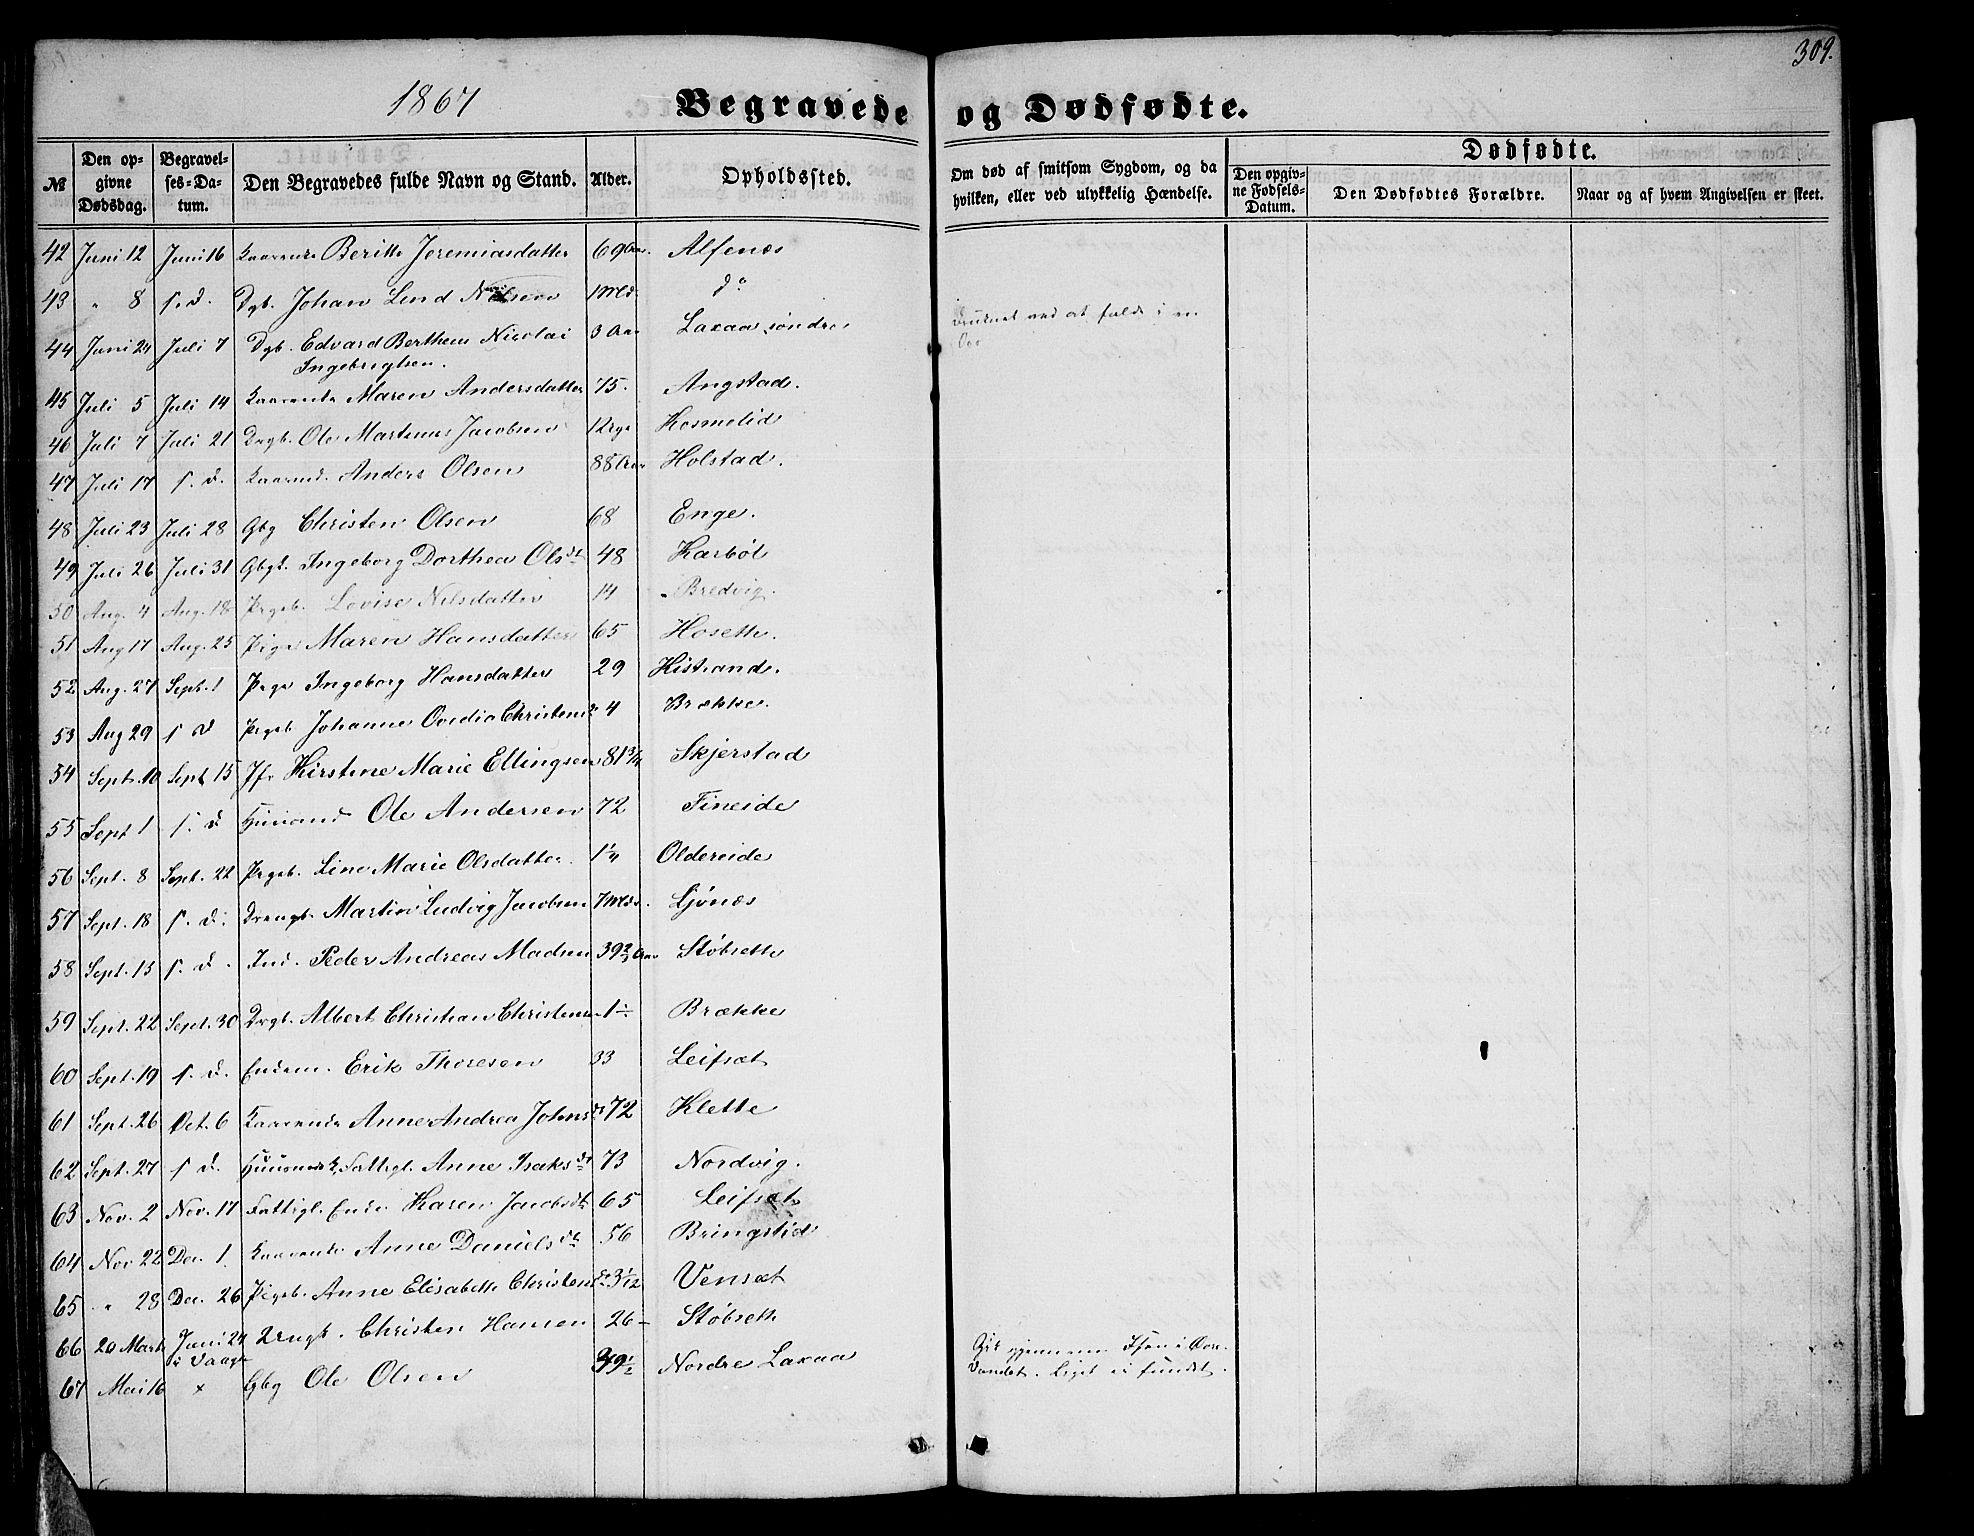 309.
1867 Begravede og Dødfødte.
№ Den opgivne Dødsdag. Begravelses-Datum. Den Begravedes fulde Navn og Stand. Alder. Opholdssted. Om død af smitsom Sygdom, og da hvilken, eller ved ulykkelig Hændelse. Dødfødte. Den opgivne Fødsels-Datum. Den Dødfødtes Forældre. Naar og af hvem Angivelsen er skeet.
42 Juni 12 Juni 16 Kaarenke Beritte Jeremiasdatter 69 Aar. Alfenæs
43 " 8 s. d. Dgb. Johan Lind Nilsen 1 Md. do
44 Juni 24 Juli 7 Dgb. Edvard Bertheus Nicolai 3 Aar Laxaa søndre ved at falde i en
Ingebrigtsen.
45 Juli 5 Juli 14 Kaarenke Maren Andersdatter 75. Angstad.
46 Juli 7 Juli 21 Drgb. Ole Martinus Jacobsen 12 Kosmolid
47 Juli 17 s. d. Kaarmd. Anders Olsen 88 Aar Holstad.
48 Juli 23 Juli 28 Gbg Christen Olsen 68 Enge.
49 Juli 26 Juli 31 Gbgk. Ingeborg Dorthea Olsdt 48 Karbøl
50 Aug. 4 Aug. 18 Pigeb. Lovise Nilsdatter 14 Bredvig.
51 Aug 17 Aug. 25 Pige Maren Hansdatter 65 Hosette.
52 Aug. 27 Sept. 1 Pige Ingeborg Hansdatter 29 Kistrand.
53 Aug 29 s d Pigeb. Johanne Ovedia Christensd. 4 Brække.
54 Sept. 10 Sept 15 Jfr Kirstine Marie Ellingsen 81 3/4 Skjerstad
55 Sept 1 s. d Huusmd Ole Andersen 72 Fineide
56 Sept. 8 Sept. 22 Pigeb. Line Marie Olsdatter 1 1/4 Oldereide
57 Sept. 18 s. d. Drengb. Martin Ludvig Jacobsen 7 Mdr. Ljønæs
58 Sept. 15 s. d. Ind. Peder Andreas Madsen 39 2/3 Aar Støbsette
59 Sept. 22 Sept. 30 Drgb. Albert Christian Christensen 1 Brække
60 Sept. 19 s. d. Enkem. Erik Thoresen 33 Leifsæt
61 Sept. 26 Oct. 6 Kaarenke Anne Andrea Johnsdt 72 Klette
62 Sept. 27 s d. Fattigl. Anne Isaksdt 73 Nordvig.
63 Nov. 2 Nov. 17 Fattigl. Enke Karen Jacobsdt 65 Leifsæt
64 Nov 22 Dec. 1 Kaarenke Anne Danielsdt 56 Bringslid
65 " 28 Dec. 26 Pigeb. Anne Elisabeth Christensd. 3 1/12 Vensæt
66 20 Marts Juni 24 Drngb. Christen Hansen 26 Støbsette
i Vaage
67 Mai 16 x Gbg Ole Olsen 49 1/2 Nordre Laxaa Gik gjennem Isen i Øvre
Vandet. Liget ei fundet.